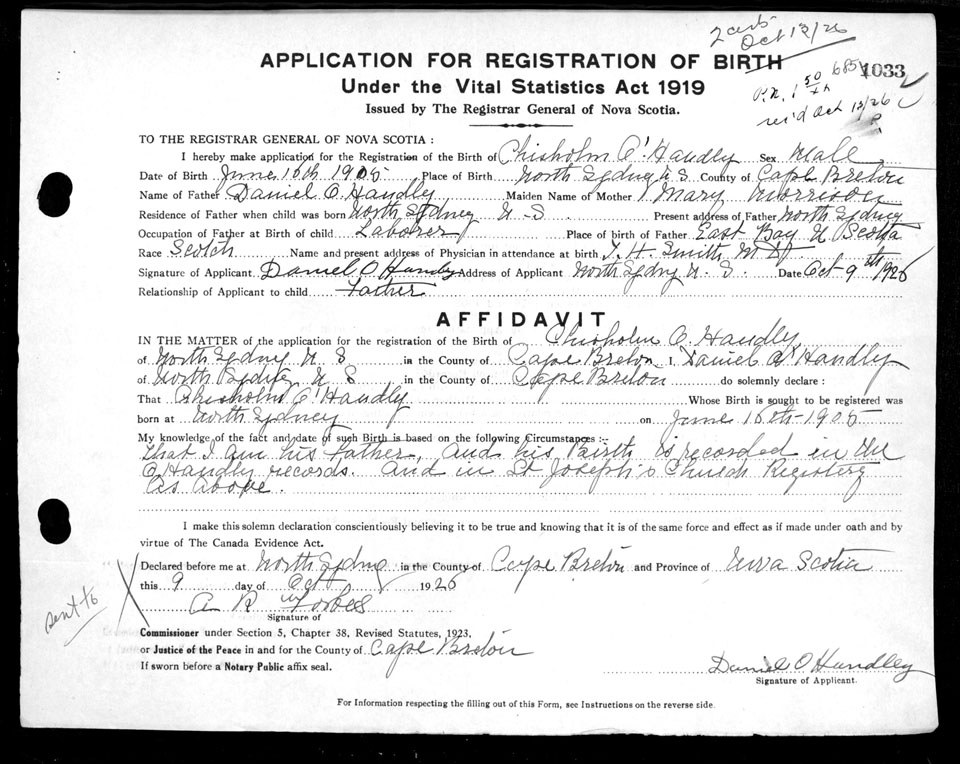 2 certs
Oct 13/26
APPLICATION FOR REGISTRATION OF BIRTH
Under the Vital Statistics Act 1919
Issued by The Registrar General of Nova Scotia.
685 1033
1 50
rec'd Oct 13/26
TO THE REGISTRAR GENERAL OF NOVA SCOTIA :
I hereby make application for the Registration of the Birth of Chisholm O'Handly Sex Male
Date of Birth June 16th 1905 Place of Birth North Sydney N S County of Cape Breton
Name of Father Daniel O Handley Maiden Name of Mother Mary Morrison
Residence of Father when child was born North Sydney N S Present address of Father North Sydney
Occupation of Father at Birth of child Laborer Place of birth of Father East Bay N Scotia
Race Scotch Name and present address of Physician in attendance at birth T. H. Smith M D
Signature of Applicant Daniel O Handley Address of Applicant North Sydney N. S. Date Oct 9th 1926
Relationship of Applicant to child Father
AFFIDAVIT
IN THE MATTER of the application for the registration of the Birth of Chisholm O. Handly
of North Sydney N. S in the County of Cape Breton I, Daniel O'Handly
of North Sydney N S in the County of Cape Breton do solemnly declare :
That Chisholm O'Handly Whose Birth is sought to be registered was
born at North Sydney on June 16th-1905
My knowledge of the fact and date of such Birth is based on the following Circumstances :-
That I am his Father, And his Birth is recorded in the
O'Handly records. And in St Joseph's Church Registery
As above.
I make this solemn declaration conscientiously believing it to be true and knowing that it is of the same force and effect as if made under oath and by
virtue of The Canada Evidence Act.
Declared before me at North Sydney in the County of Cape Breton and Province of Nova Scotia
this 9 day of Oct 1926
sent to
A R Forbes
Signature of
Commissioner under Section 5, Chapter 38, Revised Statutes, 1923,
or Justice of the Peace in and for the County of Cape Breton
If sworn before a Notary Public affix seal.
Daniel O Handley
Signature of Applicant.
For Information respecting the filling out of this Form, see Instructions on the reverse side.